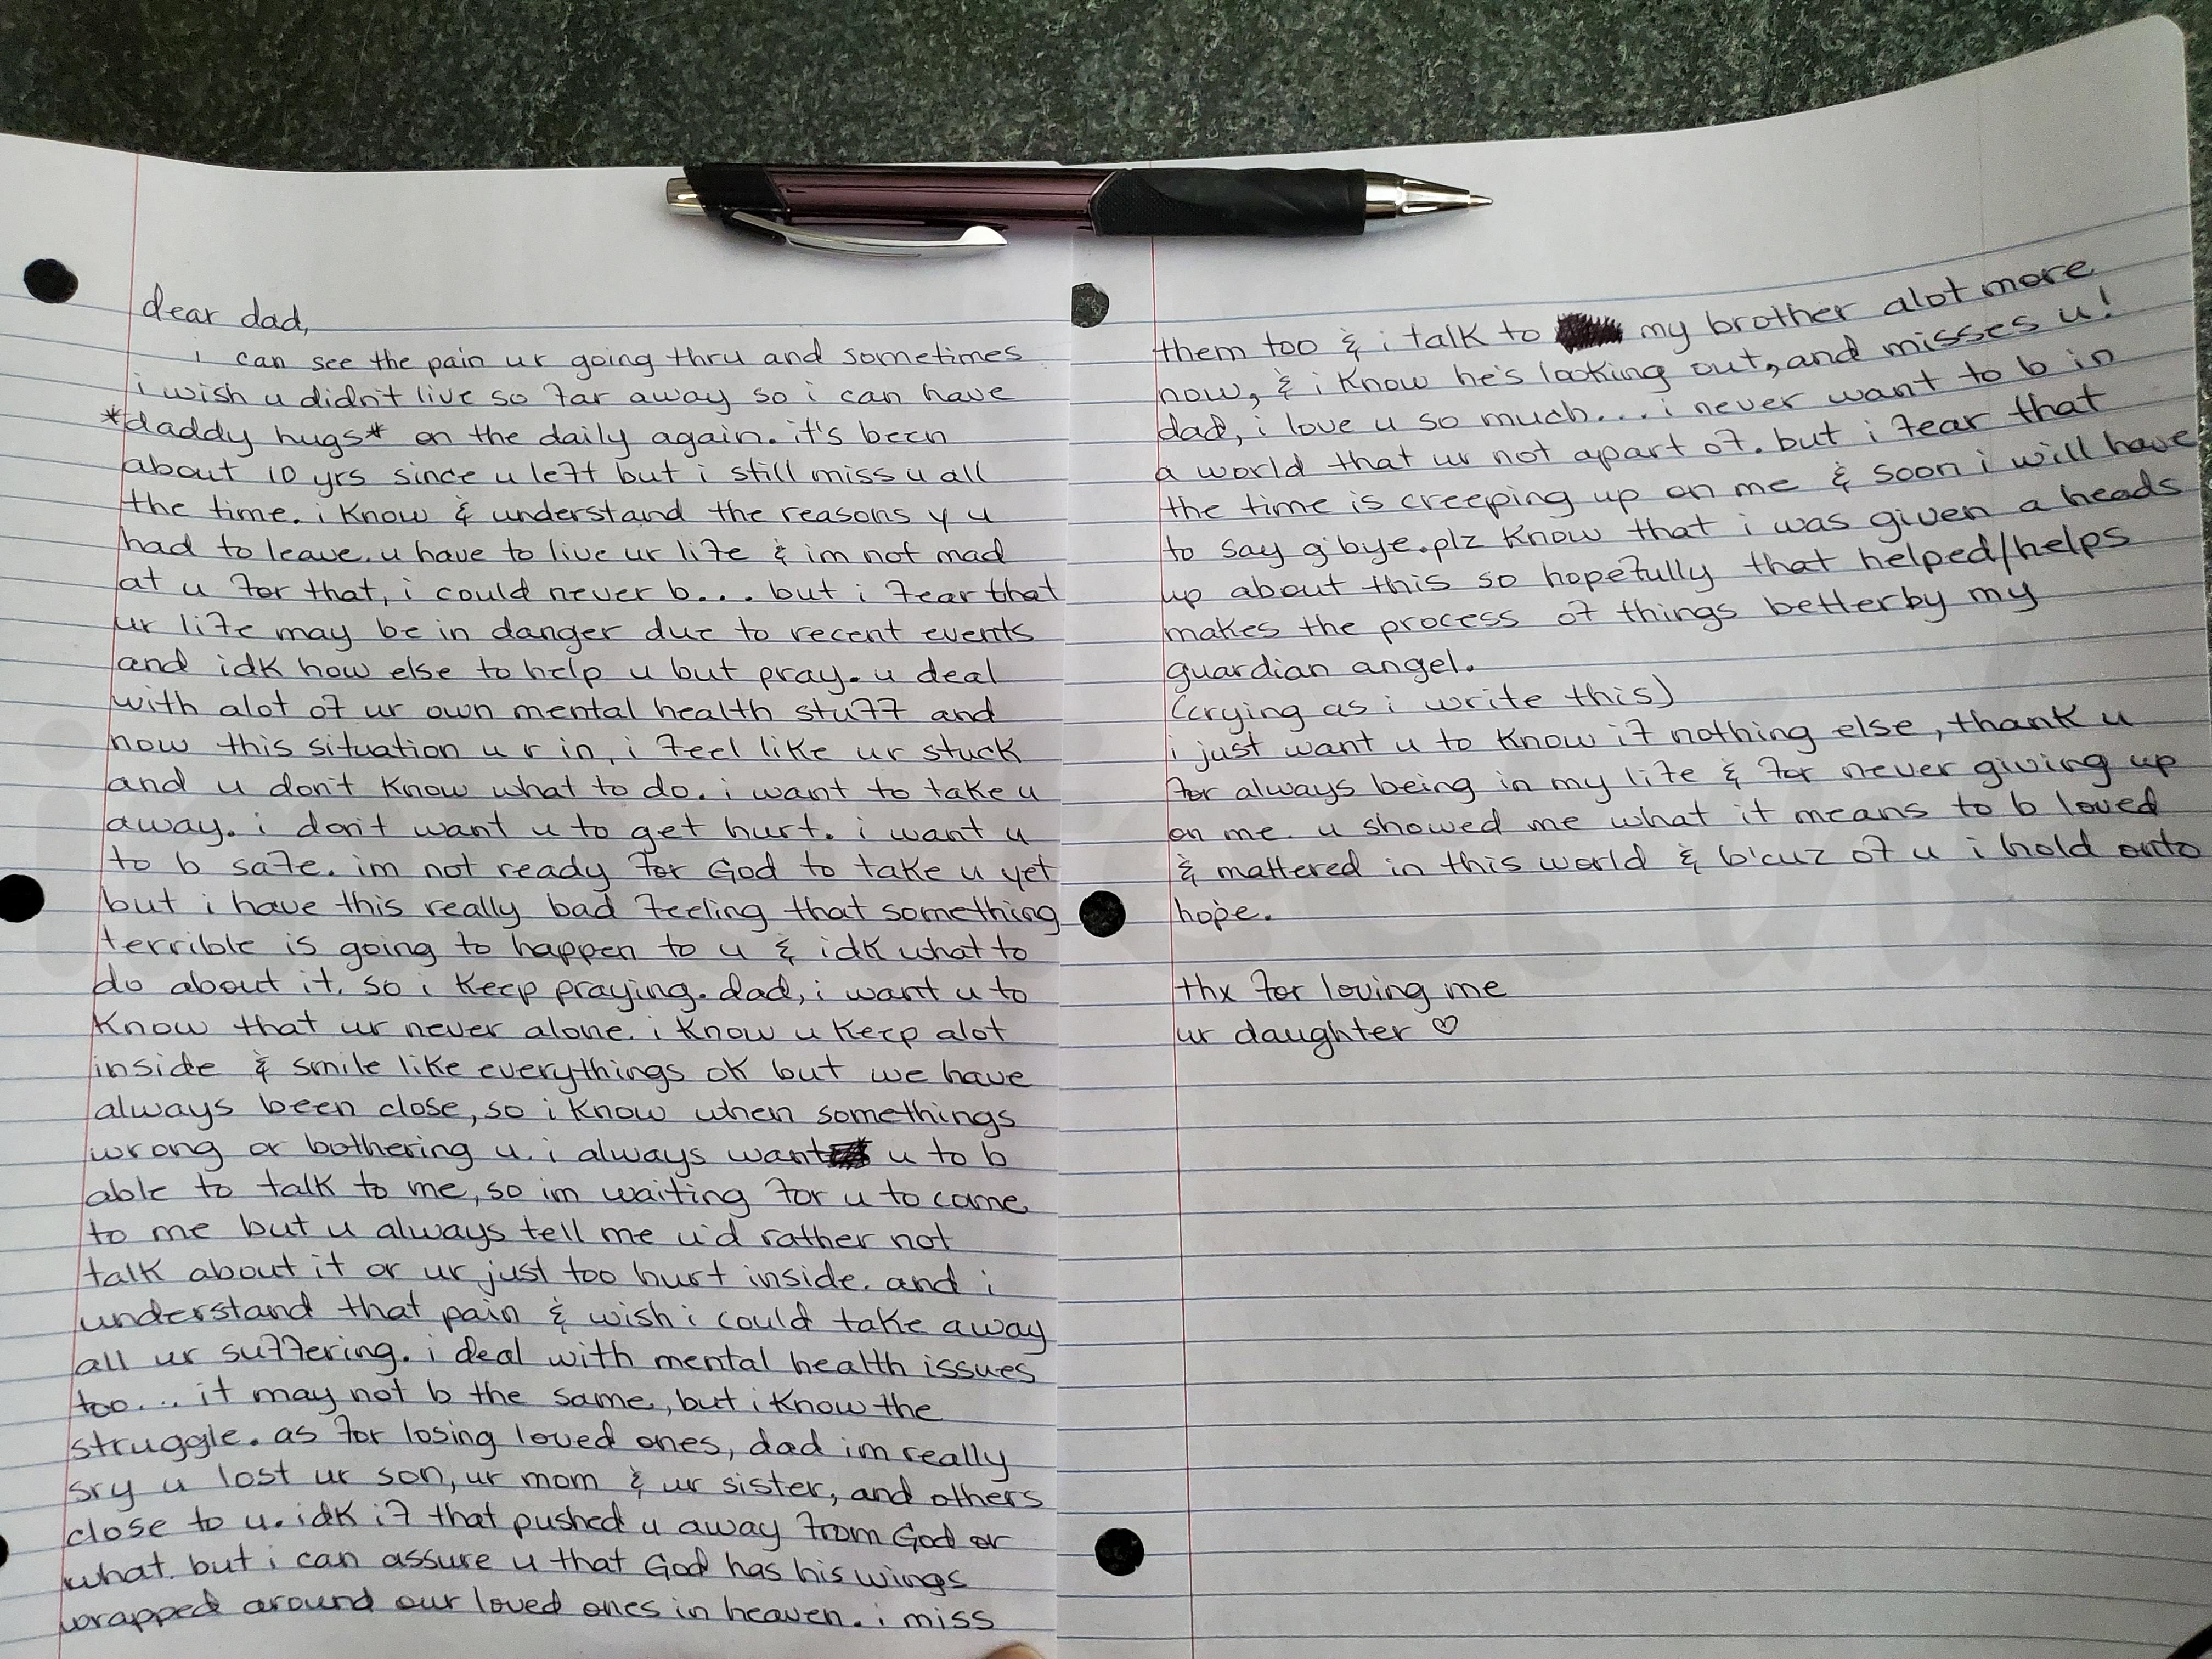 dear dad,
i can see the pain ur going thru and sometimes
i wish u didn't live so far away so i can have
*daddy hugs* on the daily again. it's been
about 10 yrs since u left but i still miss u all
the time. i know & understand the reasons y u
had to leave. u have to live ur life & im not mad
at u for that, i could never b... but i fear that
ur life may be in danger due to recent events
and idk how else to help u but pray. u deal
with alot of ur own mental health stuff and
now this situation u r in, i feel like ur stuck
and u don't know what to do. i want to take u
away. i don't want u to get hurt. i want u
to b safe. im not ready for God to take u yet
but i have this really bad feeling that something
terrible is going to happen to u & idk what to
do about it. so i keep praying. dad, i want u to
know that ur never alone. i know u keep alot
inside & smile like everythings ok but we have
always been close, so i know when somethings
wrong or bothering u. i always want u to b
able to talk to me, so im waiting for u to come
to me but u always tell me u'd rather not
talk about it or ur just too hurt inside. and i
understand that pain & wish i could take away
all ur suffering. i deal with mental health issues
too... it may not b the same, but i know the
struggle. as for losing loved ones, dad im really
sry u lost ur son, ur mom & ur sister, and others
close to u. idk if that pushed u away from God or
what. but i can assure u that God has his wings
wrapped around our loved ones in heaven. i miss
them too & i talk to my brother alot more
now, & i know he's looking out, and misses u!
dad, i love u so much... i never want to b in
a world that ur not apart of. but i fear that
the time is creeping up on me & soon i will have
to say g'bye. plz know that i was given a heads
up about this so hopefully that helped/helps
makes the process of things better by my
guardian angel.
(crying as i write this)
i just want u to know if nothing else, thank u
for always being in my life & for never giving up
on me. u showed me what it means to b loved
& mattered in this world & b'cuz of u i hold onto
hope.
thx for loving me
ur daughter ♡